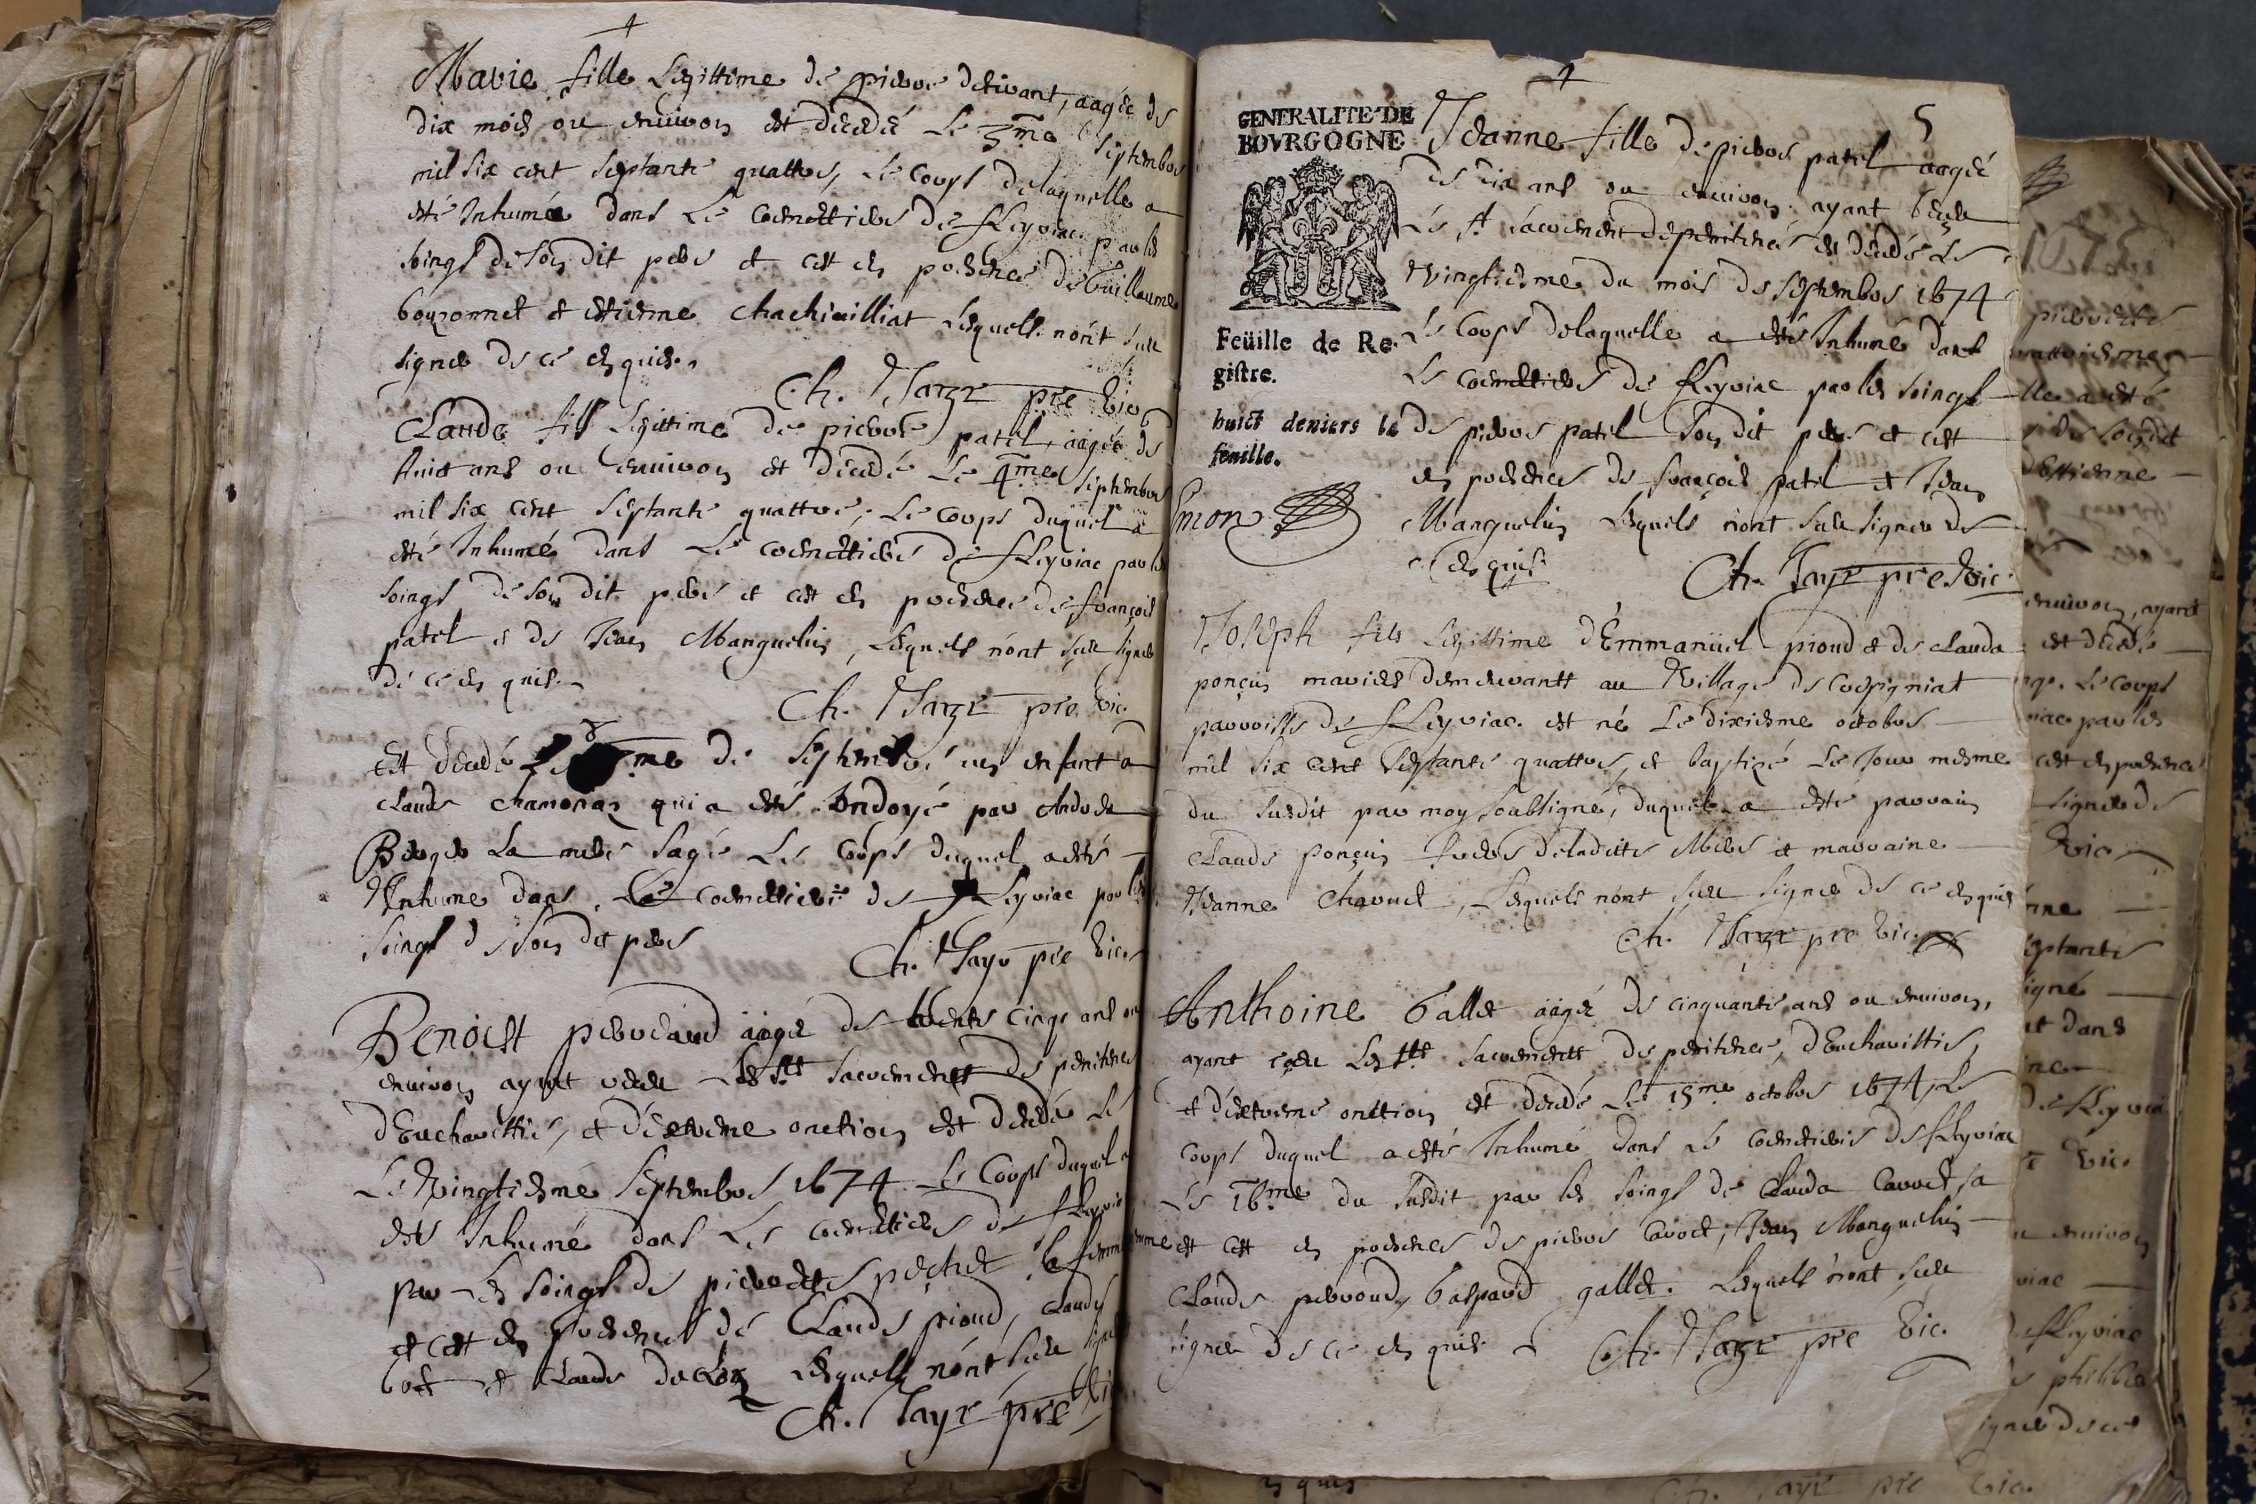 Marie fille Legittime de pierre detivant, aagée de
dix mois ou environ est decedé Le 3me septembre
mil six cent septante quattre, Le corps delaquelle a
esté Inhumée dans Le coemettiere de fLeyriac par les
soings de son dit pere et cest en presence de Guillaume
bouronnet et estienne chachivilliat Lesquels n'ont sceu
signer de ce enquis.
Ch. Jayr pre vic.
Claude fils Legittime de pierre patel, aagée de
huict ans ou environ est decedé Le 4me septembre
mil six cent septante quattre, Le corps duquel a
esté Inhumé dans Le coemettiere de fLeyriac par les
soings de son dit pere et cest en presence de françois
patel et de Jean Manguelin, Lesquels n'ont sceu signer
de ce enquis.
Ch. Jayr pre vic.
Est decedé Le me de septembre un enfant a
claude chamonaz qui a esté Ondoyé par Andrea
Berger La mere sage Le Corps duquel a esté
Inhume dans Le coemettiere de fLeyriac par les
soings de son dit pere
Ch. Jayr pre vic.
Benoist perreaud aagé de trente cinqe ans ou
environ ayant receu Les Sts sacrements de penitence
d'Eucharistie, et d'extreme onction est decedé Le
Le Vingtiesme Septembre 1674 Le Corps duquel a
esté Inhumé dans Le coemettiere de fLeyriac
par Les soings de pierrette pechet sa femme
et cest en presence de Claude pioud, claude
bost et claude Les quels n'ont sceu signer
Ch. Jayr pre vic
5
GENERALITE DE
BOVRGOGNE
Feüille de Re-
gistre.
huict deniers la
feuille.
Emon
Jeanne fille de pierre patel aagée
de dix ans ou environ ayant receu
Le St sacrement de penitence est decedé Le
Vingtiesme du mois de septembre 1674
Le Corps delaquelle a esté Inhumé dans
Le coemettiere de fLeyriac par les soings
de pierre patel son dit pere et cest
en presence de françois patel et Jean
Manguelin Lesquels n'ont sceu signer de
ce enquis.
Ch. Jayr pre vic.
Joseph fils Legittime d'Emmanüel pioud et de clauda
ponçin mariés demeurantt au Village de Crepigniat
parroisse de fLeyriac. est né Le dixiesme octobre
mil six cent septante quattre, et baptizé Le Jour mesme
du susdit par moy soubsigné, duquel a esté parrain
Claude ponçin frere deladitte Mere et marraine
Jeanne Charvet, Lesquels n'ont sceu signer de ce enquis
Ch. Jayr pre vic.
Anthoine Gallet aagé de cinquante ans ou environ,
ayant receu Les Sts sacrements de penitence, d'Eucharistie,
et d'extreme onction est decedé Le 15me octobre 1674, Le
corps duquel a esté Inhumé dans Le coemettiere de fLeyriac
Le 16me du susdit par les soings de Clauda Cavoet sa
femme et cest en presence de pierre Cavoet, Jean Manguelin
Claude perroud, Gaspard gallet. Lesquels n'ont sceu
signer de ce enquis. Ch. Jayr pre vic.